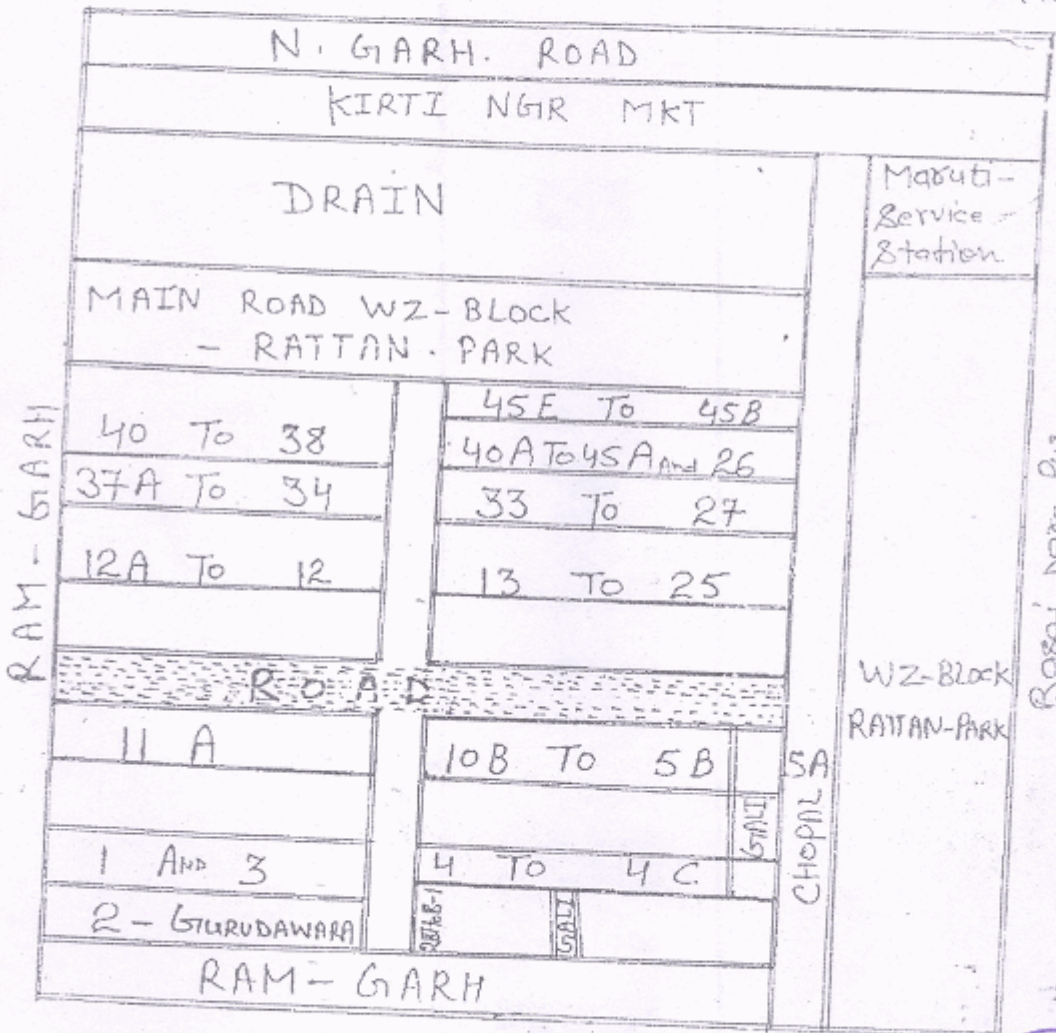 N. GARH. ROAD
KIRTI NGR MKT
DRAIN
Maruti-
Service-
Station
MAIN ROAD WZ-BLOCK
- RATTAN. PARK
RAM-GARH
40 To 38
45E To 45B
40A To 45A And 26
37A To 34
33 To 27
12A To 12
13 To 25
ROAD
WZ-BLOCK
RATTAN-PARK
11 A
10B To 5B
5A
GALI
CHOPAL
1 AND 3
4 To 4C
2-GURUDAWARA
GALI
RAM-GARH